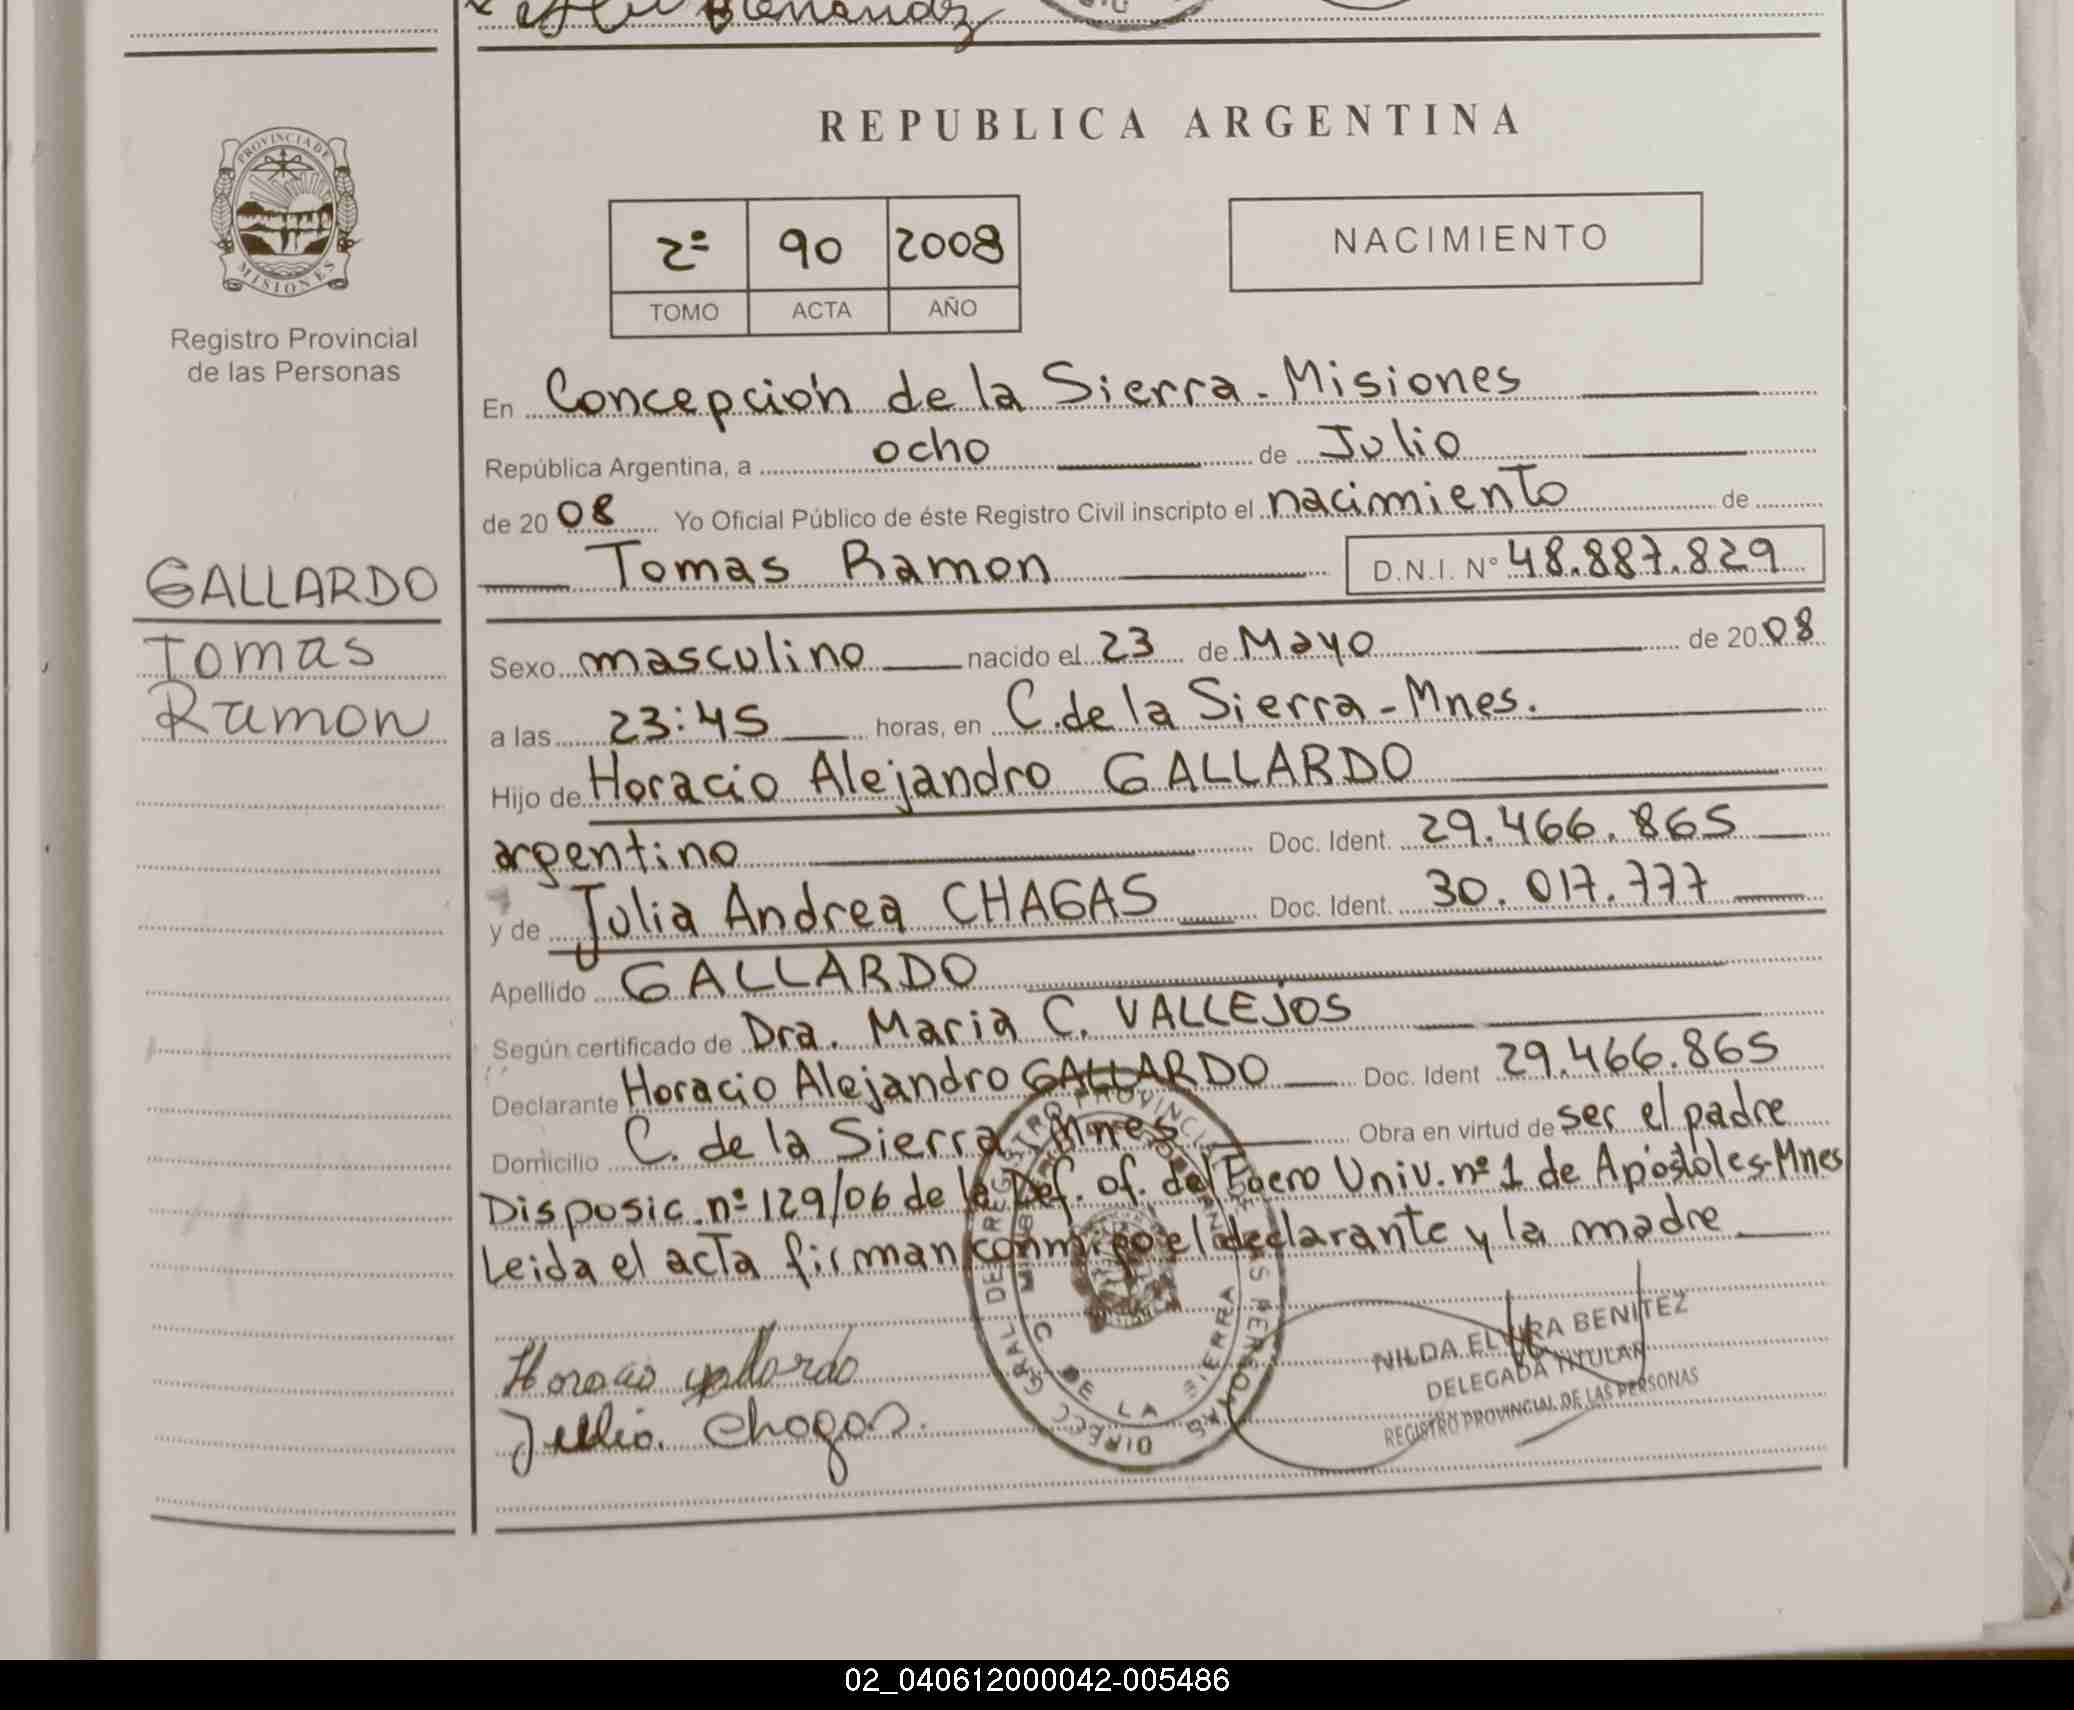 Hernandez
REPUBLICA ARGENTINA
PROVINCIA DE
MISIONES
Registro Provincial
de las Personas
2º 90 2008
TOMO ACTA AÑO
NACIMIENTO
En Concepción de la Sierra - Misiones
República Argentina, a ocho de Julio
de 2008 Yo Oficial Público de éste Registro Civil inscripto el nacimiento de
Tomas Ramon D.N.I. Nº 48.887.829
GALLARDO
Tomas
Ramon
Sexo masculino nacido el 23 de Mayo de 2008
a las 23:45 horas, en C. de la Sierra - Mnes.
Hijo de Horacio Alejandro GALLARDO
argentino Doc. Ident. 29.466.865
y de Julia Andrea CHAGAS Doc. Ident. 30.017.777
Apellido GALLARDO
Según certificado de Dra. Maria C. VALLEJOS
Declarante Horacio Alejandro GALLARDO Doc. Ident 29.466.865
Domicilio C. de la Sierra Mnes Obra en virtud de ser el padre
Disposic. nº 129/06 de la Def. of. del Fuero Univ. nº 1 de Apóstoles-Mnes
Leida el acta firman conmigo el declarante y la madre
Horacio gallardo
Julia. Chagas.
DIRECC GRAL DE REGISTRO PROVINCIAL DE LAS PERSONAS
C DE LA SIERRA
NILDA ELVIRA BENITEZ
DELEGADA TITULAR
REGISTRO PROVINCIAL DE LAS PERSONAS
02_040612000042-005486